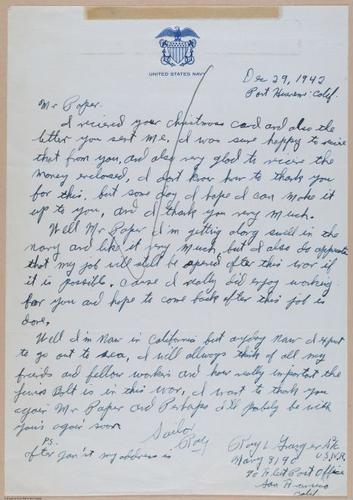 UNITED STATES NAVY
Dec 29, 1942
Port Hueneme - Calif.
Mr Roper.
I recieved your Christmas card and also the
letter you sent me, I was sure happy to recive
that from you, and also very glad to recive the
money enclosed, I dont know how to thank you
for this, but some day I hope I can make it
up to you, and I thank you very much.
Well Mr Roper I'm getting along swell in the
navy and like it very much, but I also do appreciate
that my job will still be opened after this war if
it is possible, cause I really did enjoy working
for you and hope to come back after this job is
done.
Well I'm Now in California but anyday now I expect
to go out to sea, I will allways think of all my
friends and fellow workers and how really important the
Bolt is in this war, I want to thank you
again Mr Roper and Perhaps I'll be with
you's again soon.
Sailor
Ray
Ray L.
U.S.N.R.
Navy
Post Office
San
Calif
P.S.
my address is